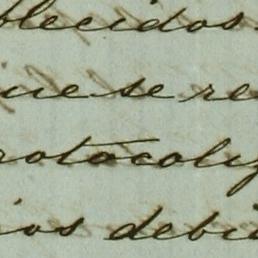 blecidos
que se re
rotocoliz
ios debi